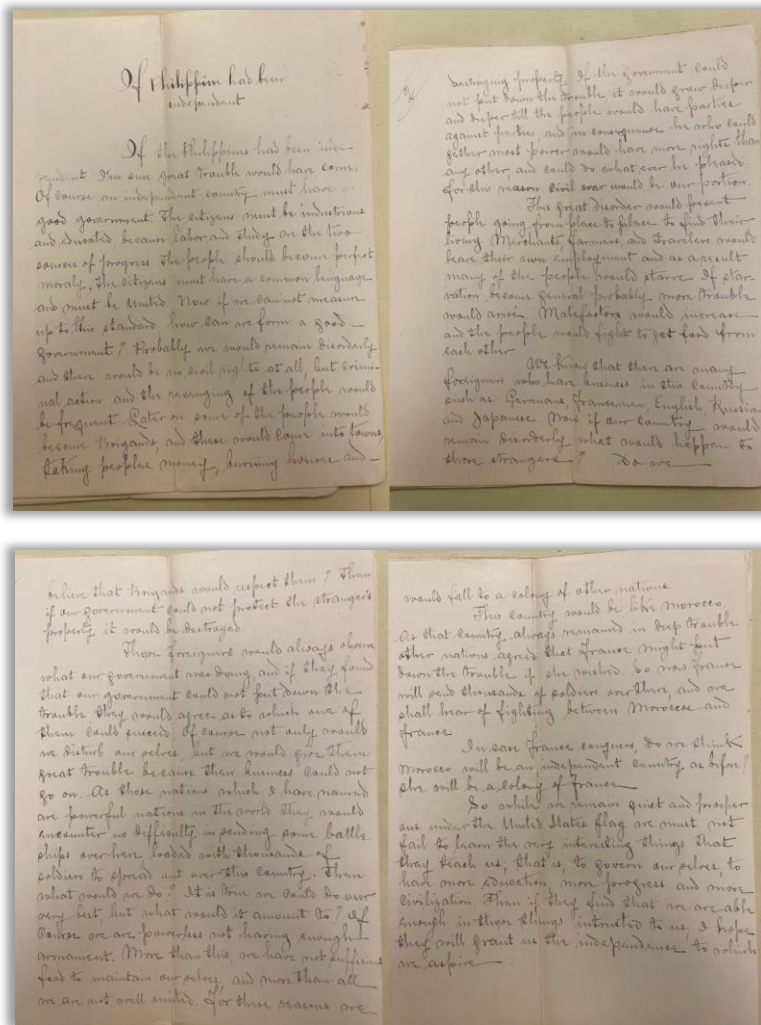 If Philippine had been
independent
If the Philippines had been inde-
pendent I'm sure great trouble would have come.
Of course an independent country must have a
good government The citizens must be industrious
and educated, because labor and study are the two
sources of progress. The people should become perfect
moraly, The citizens must have a common language
and must be united. Now if we can not measure
up to this standard, how can we form a good -
government? Probably we would remain disorderly
and there would be no civil rights at all, but crimi-
nal action and the revenging of the people would
be frequent Later on some of the people would
become Brigands, and these would come into towns,
taking peoples money, burning houses and -
2)
destroying property. If the government could
not put down the trouble it would grow deeper
and deeper till the people would have parties
against parties, and in consequence he who could
gather most power would have more rights than
any other, and could do what ever he pleased
for this reason civil war would be our portion.
This great disorder would prevent
people going from place to place to find their
living Merchants, farmers, and travelers would
leave their own employment and as a result
many of the people would starve If star-
vation became general probably more trouble
would arise. Malefactors would increase
and the people would fight to get food from
each other
We know that there are many
foreigners who have business in this country
such as: Germans, Frenchmen, English, Russian
and Japanese. Now if our country would
remain disorderly what would happen to
those strangers? Do we
believe that Brigands would respect them? Then
if our government could not protect the stranger's
property it would be destroyed.
Those foreigners would always observe
what our government was doing, and if they found
that our government could not put down the
trouble they would agree as to which one of
them could succeed. Of course not only would
we disturb our selves, but we would give them
great trouble because their business could not
go on. As those nations which I have named
are powerful nations in the world they would
encounter no difficulty in sending some battle
ships over here loaded with thousands of
soldiers to spread out over this country. Then
what would we do? It is true we could do our
very best but what would it amount to? Of
course we are powerless not having enough
armament. More than this, we have not sufficient
food to maintain our selves, and more than all
we are not well united. For these reasons we
would fall to a colony of other nations
This country would be like Morocco.
As that country always remained in deep trouble
other nations agreed that France might put
down the trouble if she wished. So now France
will send thousands of soldiers over there, and we
shall hear of fighting between Moroccos and
France
In case France conquers, do we think
Morocco will be an independent country as before?
She will be a colony of France
So while we remain quiet and prosper
ous under the United States flag we must not
fail to learn the very interesting things that
they teach us; that is, to govern our selves, to
have more education more progress and more
civilization. Then if they find that we are able
enough in these things intrusted to us I hope
they will grant us the independence to which
we aspire